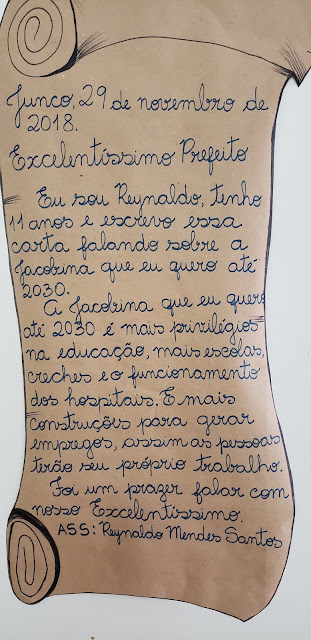 Junco, 29 de novembro de
2018.
Excelentíssimo Prefeito
Eu sou Reynaldo, tenho
11 anos e escrevo essa
carta falando sobre a
Jacobina que eu quero até
2030.
A Jacobina que eu quero
até 2030 é mais privilégios
na educação, mais escolas,
creches e o funcionamento
dos hospitais. E mais
construções para gerar
empregos, assim as pessoas
terão seu próprio trabalho.
Foi um prazer falar com
nosso Excelentíssimo.
ASS: Reynaldo Mendes Santos